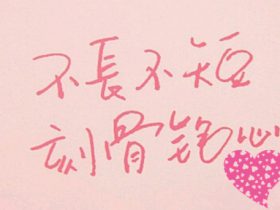 不長不短
刻骨銘心